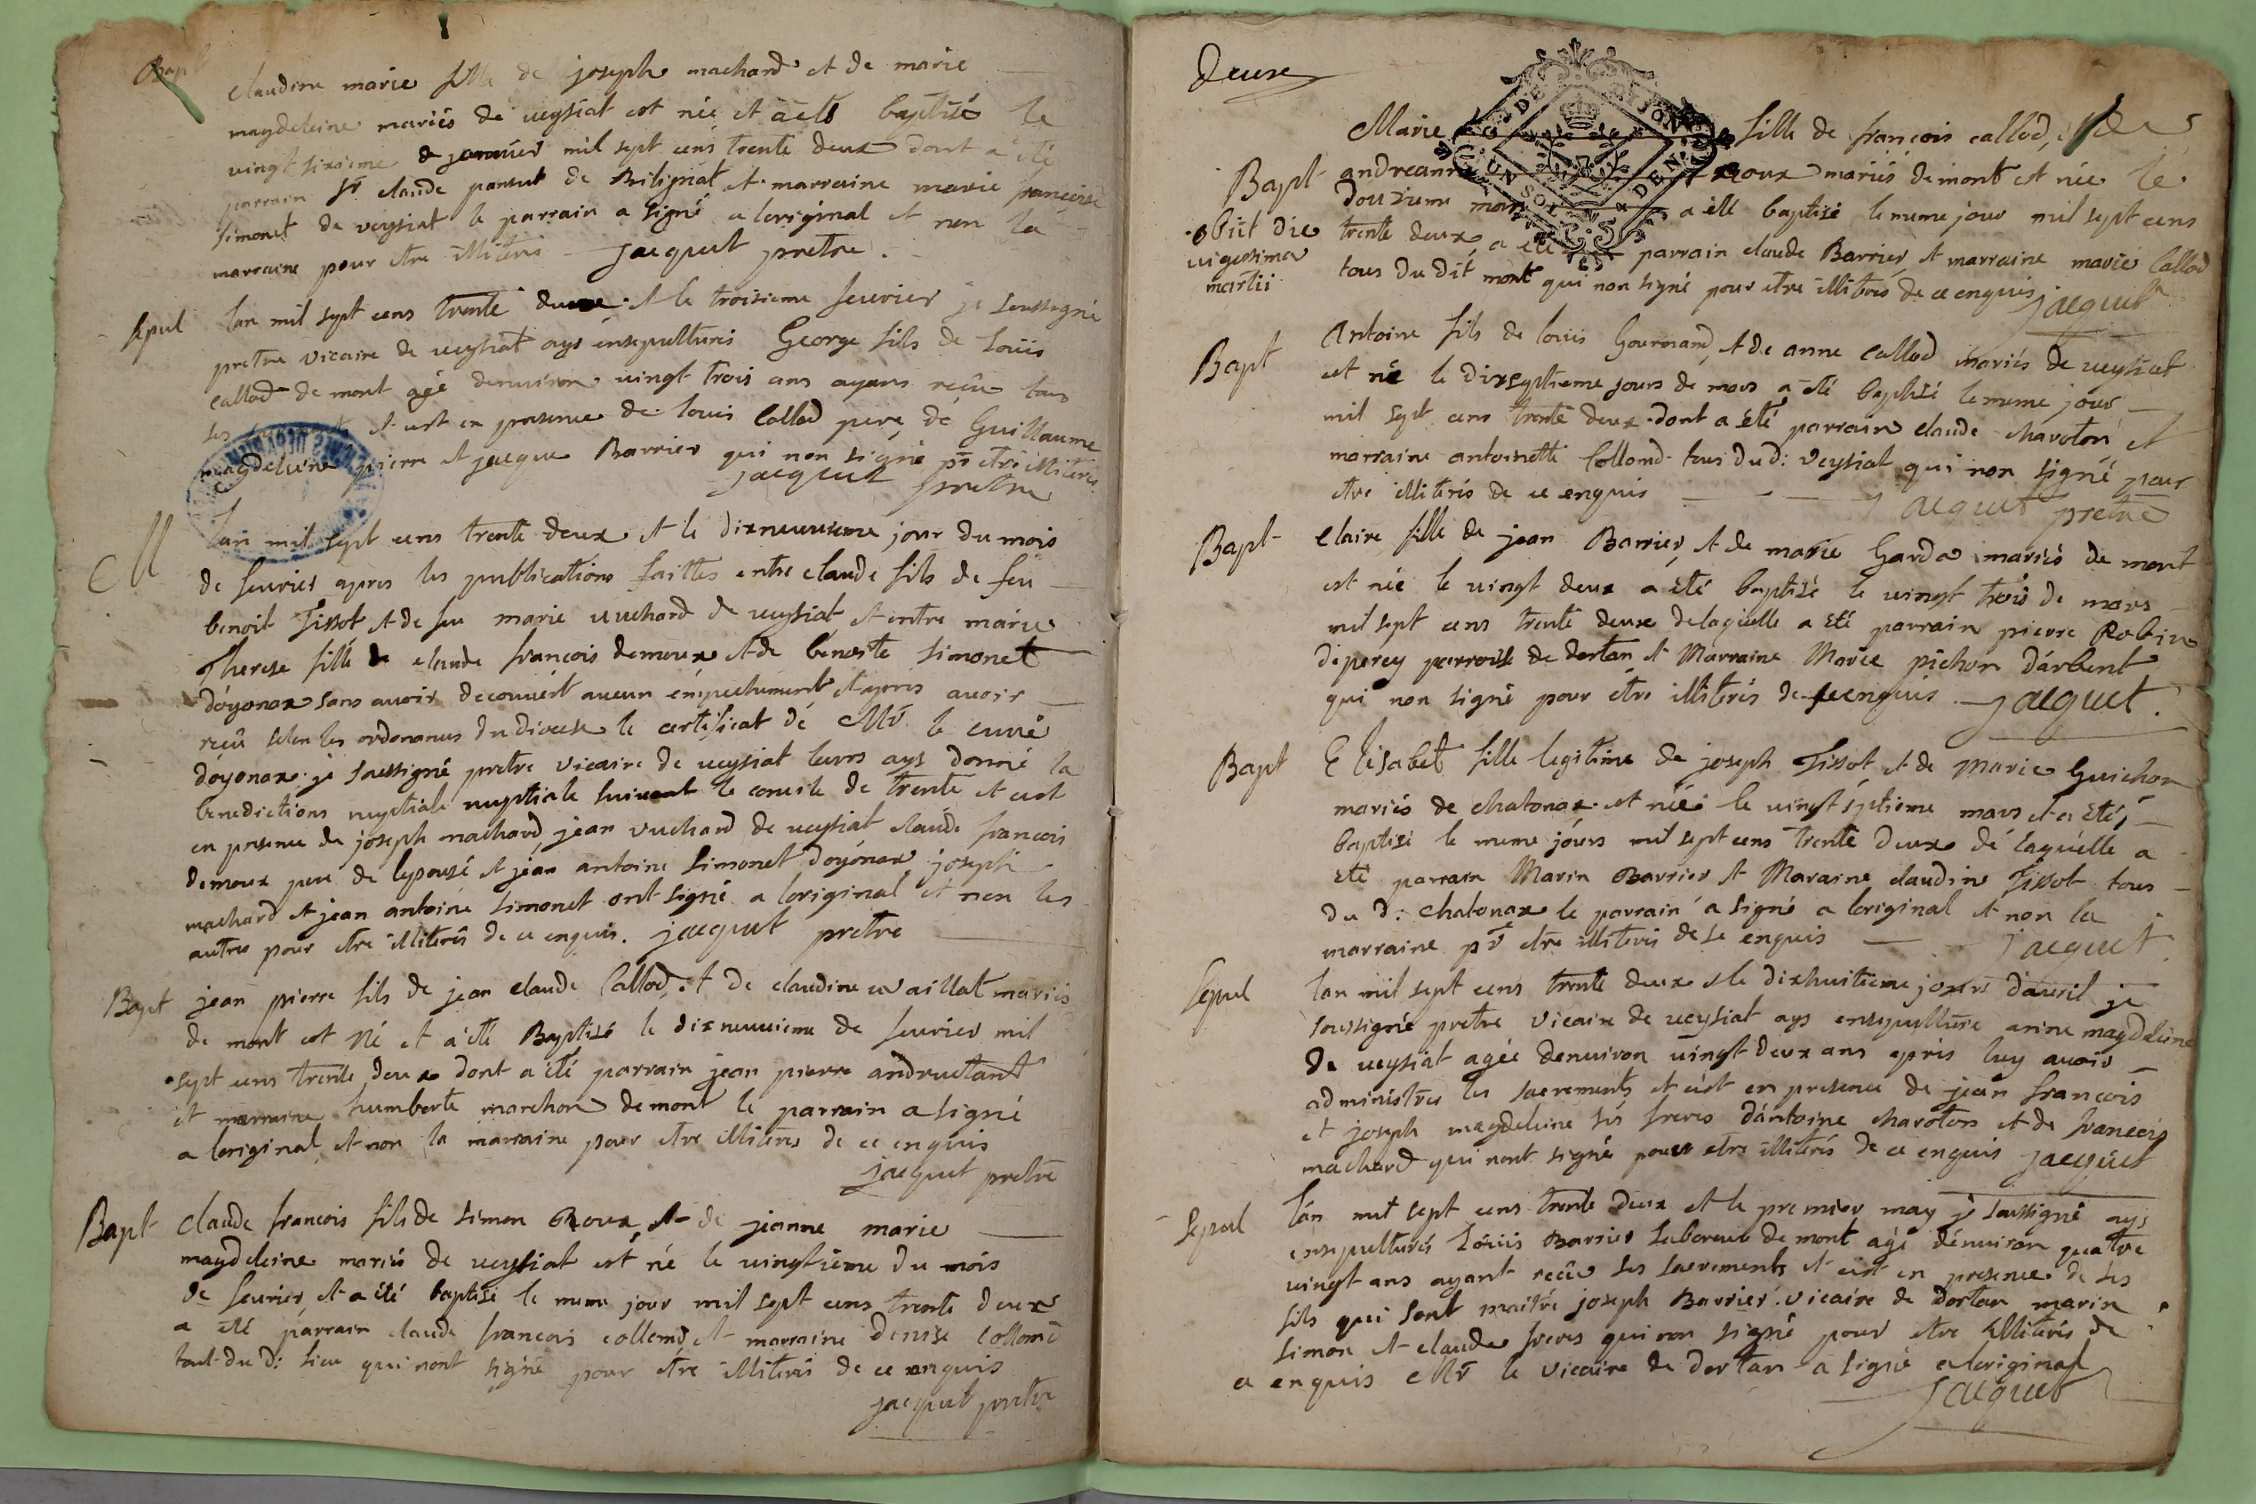 Bapt
claudine marie fille de joseph machard et de marie
magdeleine mariés de veysiat est née et a eté baptisée le
vingt sixieme de janvier mil sept cens trente deux dont a été
parrain Sr claude pansut de Bilignat et marraine marie francoise
simonet de veysiat le parrain a signé a loriginal et non la
marraine pour etre illiteris jacquet pretre.
sepul
lan mil sept cens trente deux et le troisieme feuvrier je soussigné
pretre vicaire de veysiat ays ensepulturés George fils de Loüis
callod de mont agé denviron vingt trois ans ayans reçûe tous
ses et est en presence de louis Callod pere, de Guillaume
magdeleine pierre et jacque Barrier qui non signé pr etre illiteris
jacquet pretre
M
lan mil sept cens trente deux et le dixneuvieme jour du mois
de feuvrier apres les publications faittes entre claude fils de feu
benoit Tissot et de feu marie vuchard de veysiat et entre marie
Therese fille de claude francois demoux et de benoite simonet
dóyonax sans avoir decouvert aucun émpechement et apres avoir
reçû selon les ordonances du diocese le certificat dé Mr le curé
dóyonax je soussigné pretre vicaire de veysiat leurs ays donné la
benedictions nuptiale nuptiale suivant le concile de trente et cest
en presence de joseph machard jean vuchard de veysiat claude francois
demoux pere de lepousé et jéan antoine simonet doyónax joseph
machard et jean antoine simonet ont signé a loriginal et non les
autres pour etre illiterés de ce enquis. jacquet pretre
Bapt
jean pierre fils de jean claude Callod, et de claudine vaillat mariés
de mont est Né et a été Baptisé le dixneuvieme de feuvrier mil
sept cens trente deux dont a été parrain jean pierre andruetant
et marraine humberte marchon de mont le parrain a signé
a loriginal et non la marraine pour etre illiteres de ce enquis
jacquet pretre
Bapt
Claude francois fils de simon Roux, et de jeanne marie
magdeleine mariés de veysiat est né le vingtieme du mois
de feuvrier, et a été baptisé le meme jour mil sept cens trente deux
a été parrain claude francois collomd et marraine denise collomd
tout du d: lieu qui nont signé pour etre illiterés de ce enquis
jacquet pretre
deuxe
Marie fille de francois callod, et de
Bapt
andreanne Roux mariés de mont est née le
douzieme mars a été baptisé le meme jour mil sept cens
obiit die
vigesima
martii
trente deux, a été parrain claude Barrier et marraine marie Callod
tous du dit mont qui non signé pour etre illiterés de ce enquis
jacquet
Bapt
Antoine fils de louis Gourmand, et de anne Callod mariés de veysiat
est né le dixseptieme jours de mars a été baptisé le meme jour
mil sept cens trente deux dont a été parrain claude charoton et
marraine antoinette Collomd tous du d: Veysiat qui non signé pour
etre illiterés de ce enquis jacquet pretre
Bapt
Claire fille de jean Barrier et de marie Garda mariés de mont
est née le vingt deux a été baptisé le vingt trois de mars
mil sept cens trente deux delaquelle a été parrain pierre Robin
de perey parroise de dortan et Marraine Marie pichon dárbent
qui non signé pour etre illiterés de ce enquis jacquet.
Bapt
Elisabet fille legitime de joseph Tissot et de marie Guichon
mariés de chatonax et née le vingt séptieme mars et a été
baptisé le meme jours mil sept cens trente deux dé laquélle a
été parrain Marin Barrier et Maraine claudine Tissot tous
du d: chatonax le parrain a signé a loriginal et non la
marraine pr etre illiterés de se enquis jacquet.
Sepul
lan mil sept cens trente deux et le dixhuitieme jours dávril je
soussigné pretre vicaire de veysiat ays ensepulturé anne magdeleine
de veysiat agée denviron vingt deux ans apris luy avoir
administres les sacrements et cést en presence de jean francois
et joseph magdeleine sés freres dántoine charoton et de francois
machard qui nont signé pour etre illiterés de ce enquis jacquet
Sepul
lán mil sept cens trente deux et le premier may je soussigné ays
ensepulturés Loüis Barrier laboreur de mont agé dénviron quatre
vingt ans ayant recûe ses sacrements et cést en presence de ses
fils qui sont maitre joseph Barrier vicaire de dortan marin
simon et claude freres qui non signé pour etre illiterés de
ce enquis Mr le vicaire de dortan a signé a loriginal
jacquet